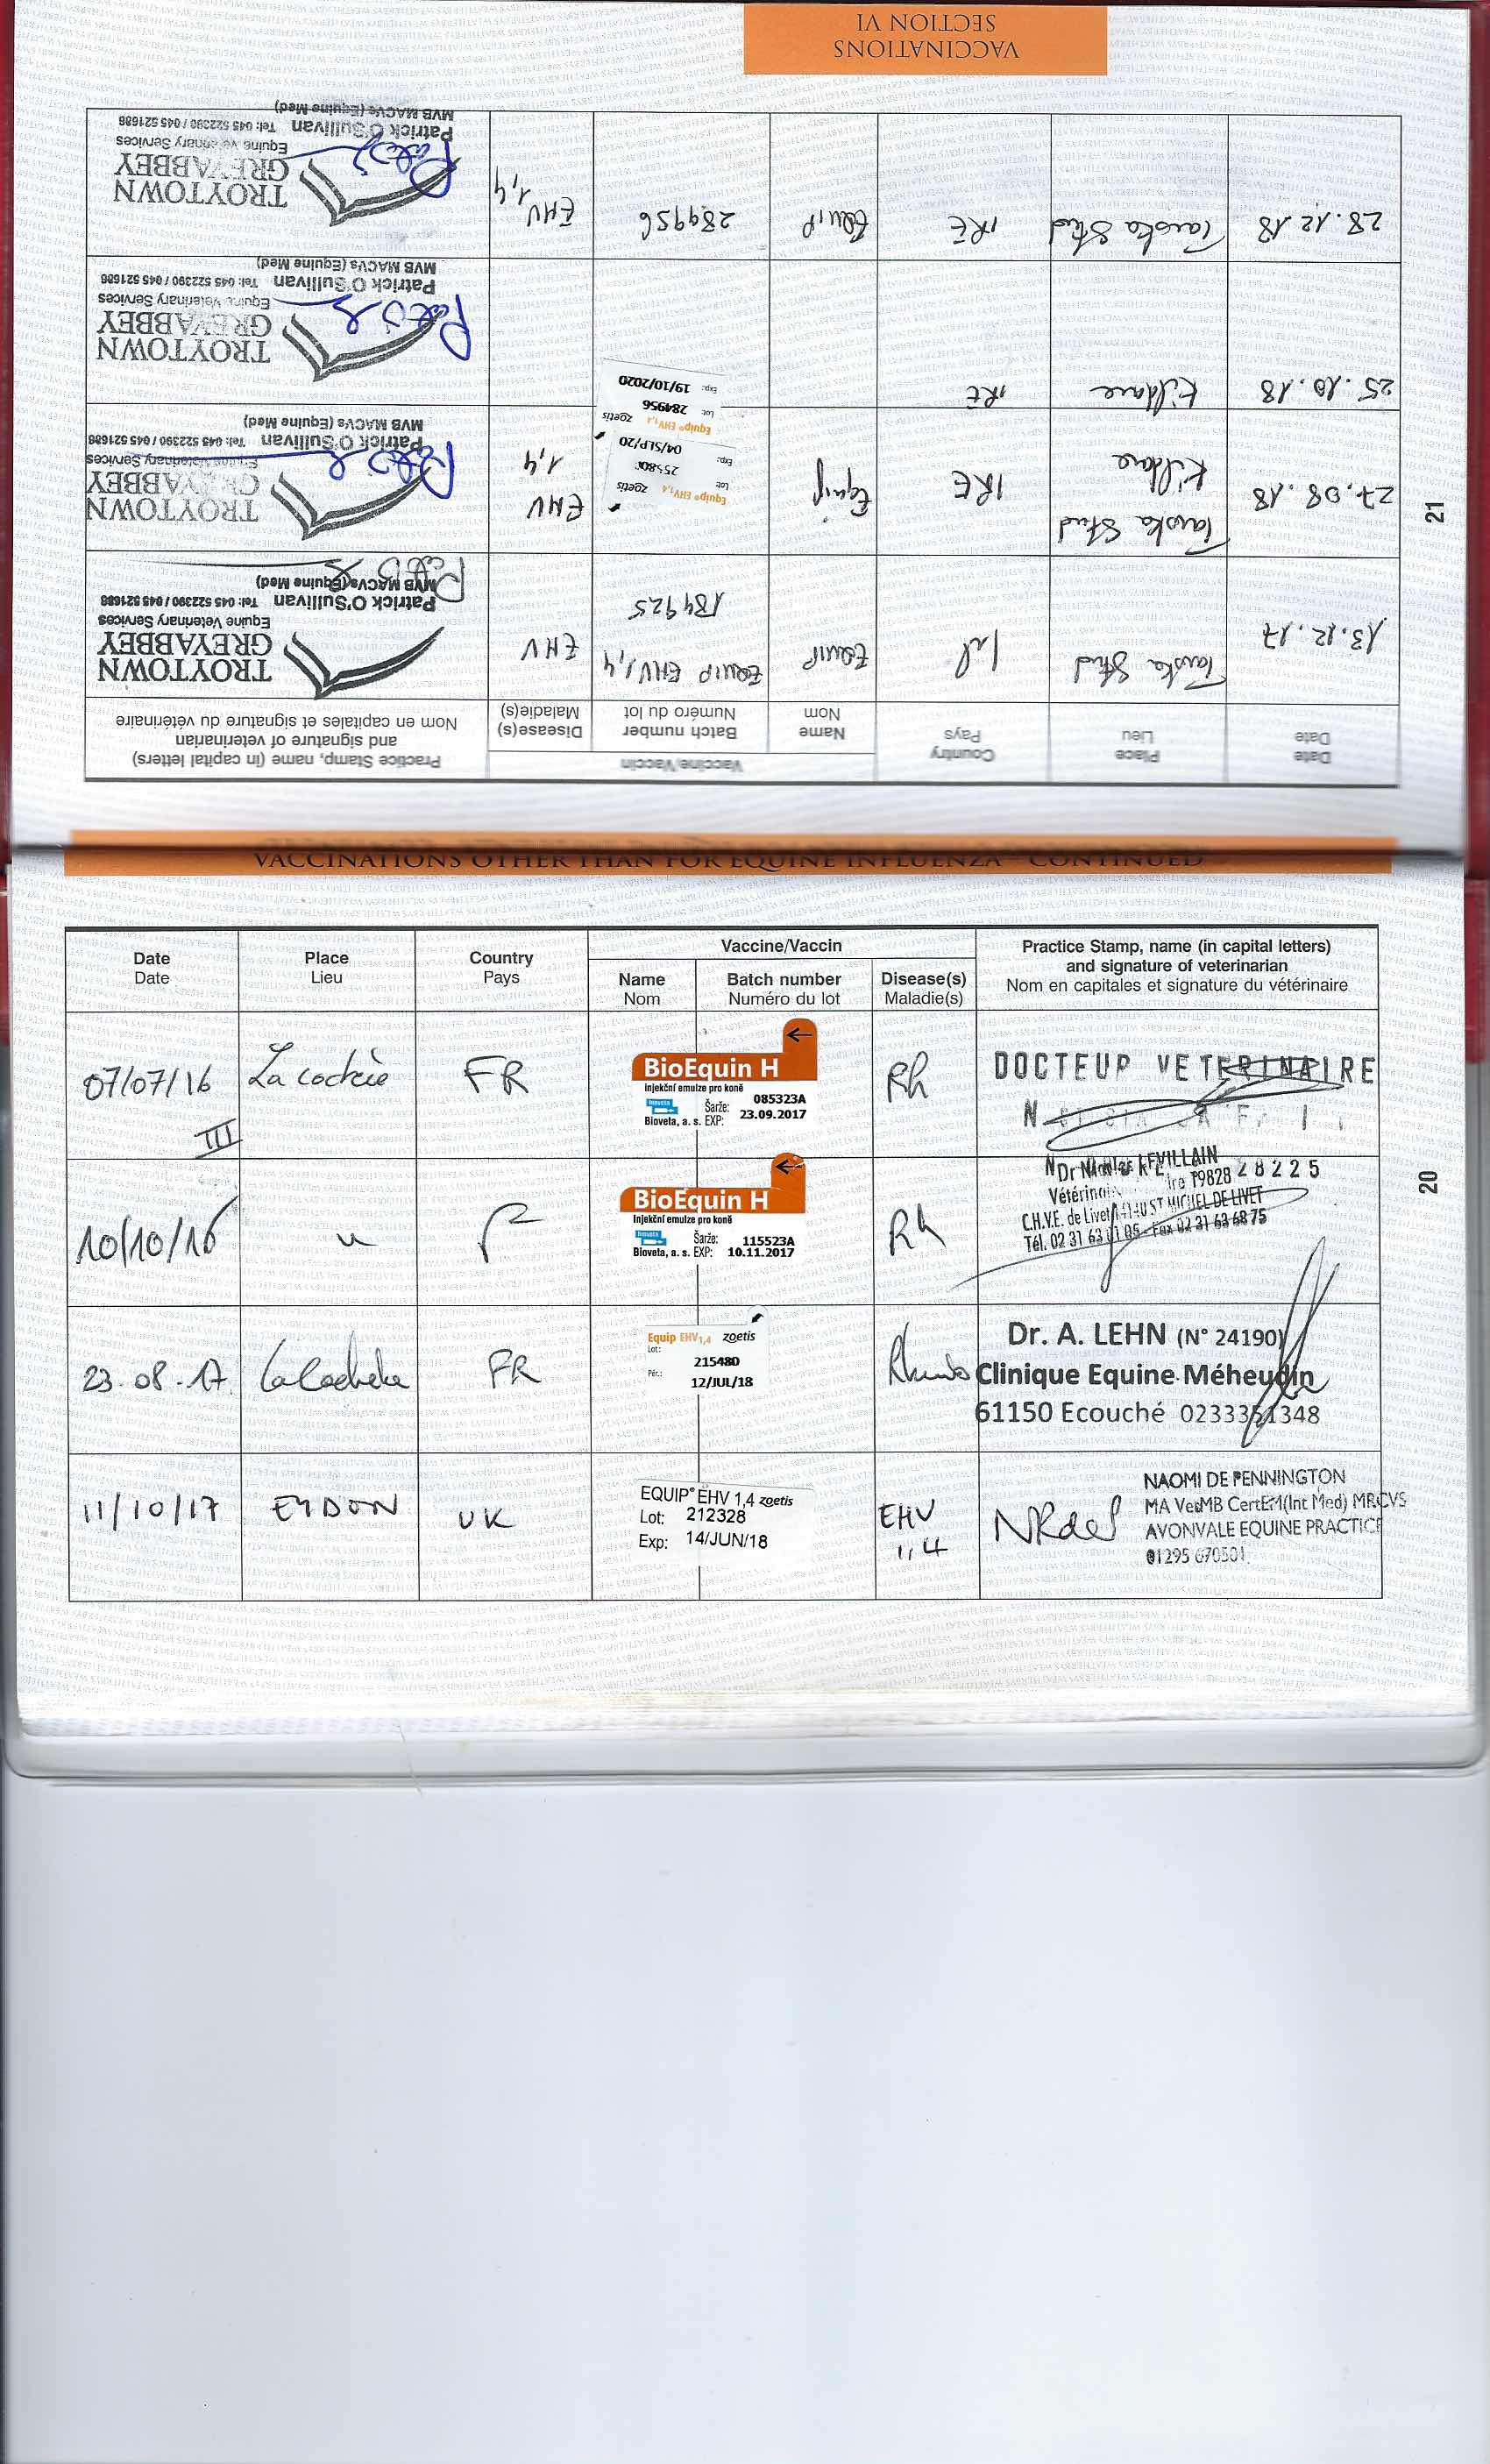 VACCINATIONS
SECTION VI
21
Date
Date
Place
Lieu
Country
Pays
Vaccine/Vaccin
Name
Nom
Batch number
Numéro du lot
Disease(s)
Maladie(s)
Practice Stamp, name (in capital letters)
and signature of veterinarian
Nom en capitales et signature du vétérinaire
13.12.17
Tarska Stud
Irl
EQUIP
EQUIP EHV 1,4
184925
EHV
TROYTOWN
GREYABBEY
Equine Veterinary Services
Patrick O'Sullivan Tel: 045 522390 / 045 521686
MVB MACVs (Equine Med)
27.08.18
Tarska Stud
Kildare
IRE
Equip
Equip® EHV1,4 zoetis
Lot:
Exp:
EHV
1,4
TROYTOWN
GREYABBEY
Equine Veterinary Services
Patrick O'Sullivan Tel: 045 522390 / 045 521686
MVB MACVs (Equine Med)
25.10.18
Kildare
IRE
Equip® EHV1,4 zoetis
Lot: 284956
Exp: 19/10/2020
TROYTOWN
GREYABBEY
Equine Veterinary Services
Patrick O'Sullivan Tel: 045 522390 / 045 521686
MVB MACVs (Equine Med)
28.12.18
Tarska Stud
IRE
EQUIP
284956
EHV
1,4
TROYTOWN
GREYABBEY
Equine Veterinary Services
Patrick O'Sullivan Tel: 045 522390 / 045 521686
MVB MACVs (Equine Med)
VACCINATIONS OTHER THAN FOR EQUINE INFLUENZA - CONTINUED
20
Date
Date
Place
Lieu
Country
Pays
Vaccine/Vaccin
Name
Nom
Batch number
Numéro du lot
Disease(s)
Maladie(s)
Practice Stamp, name (in capital letters)
and signature of veterinarian
Nom en capitales et signature du vétérinaire
07/07/16
III
La cochère
FR
BioEquin H
Injekční emulze pro koně
bioveta
Šarže: 085323A
Bioveta, a. s. EXP: 23.09.2017
Rh
DOCTEUR VETERINAIRE
10/10/16
"
F
BioEquin H
Injekční emulze pro koně
bioveta
Šarže: 115523A
Bioveta, a. s. EXP: 10.11.2017
Rh
28225
Dr Nicolas LEVILLAIN
19828
C.H.V.E. de Livet 14140 ST MICHEL DE LIVET
Tél. 02 31 63 01 05 - Fax 02 31 63 68 75
23.08.17
La Cochère
FR
Equip EHV1,4 zoetis
Lot:
215480
Pér.:
12/JUL/18
Rhino
Dr. A. LEHN (N° 24190)
Clinique Equine Méheudin
61150 Ecouché 0233351348
11/10/17
EYDON
UK
EQUIP® EHV 1,4 zoetis
Lot: 212328
Exp: 14/JUN/18
EHV
1,4
NRdeP
NAOMI DE PENNINGTON
MA VetMB CertEM(Int Med) MRCVS
AVONVALE EQUINE PRACTICE
01295 670501